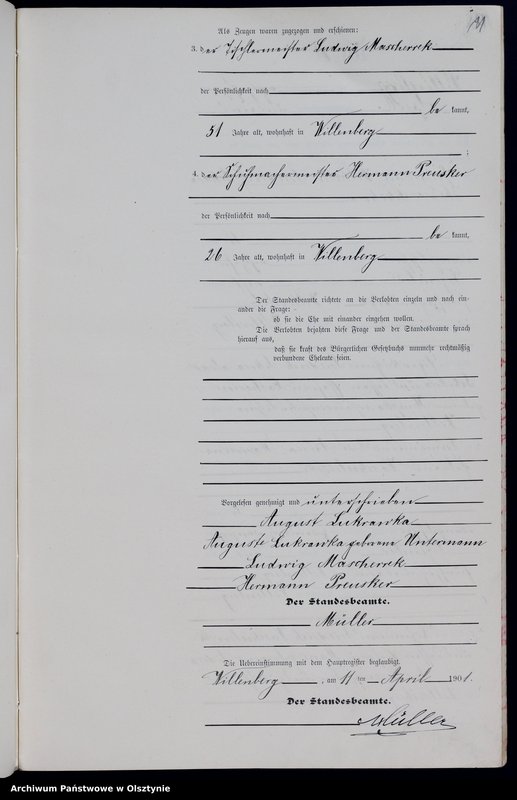 Als Zeugen waren zugezogen und erschienen:
3. der Tischlermeister Ludwig Mascherrek
der Persönlichkeit nach
be kannt,
51 Jahre alt, wohnhaft in Willenberg
;
4. der Schuhmachermeister Hermann Preusker
der Persönlichkeit nach
be kannt,
26 Jahre alt, wohnhaft in Willenberg
Der Standesbeamte richtete an die Verlobten einzeln und nach ein-
ander die Frage:
ob sie die Ehe mit einander eingehen wollen.
Die Verlobten bejahten diese Frage und der Standesbeamte sprach
hierauf aus,
daß sie kraft des Bürgerlichen Gesetzbuchs nunmehr rechtmäßig
verbundene Eheleute seien.
Vorgelesen, genehmigt und unterschrieben
August Lukrawka
Auguste Lukrawka geborene Untermann
Ludwig Mascherrek
Hermann Preusker
Der Standesbeamte.
Müller
Die Uebereinstimmung mit dem Hauptregister beglaubigt.
Willenberg, am 11 ten April 1901.
Der Standesbeamte.
Müller
Archiwum Państwowe w Olsztynie